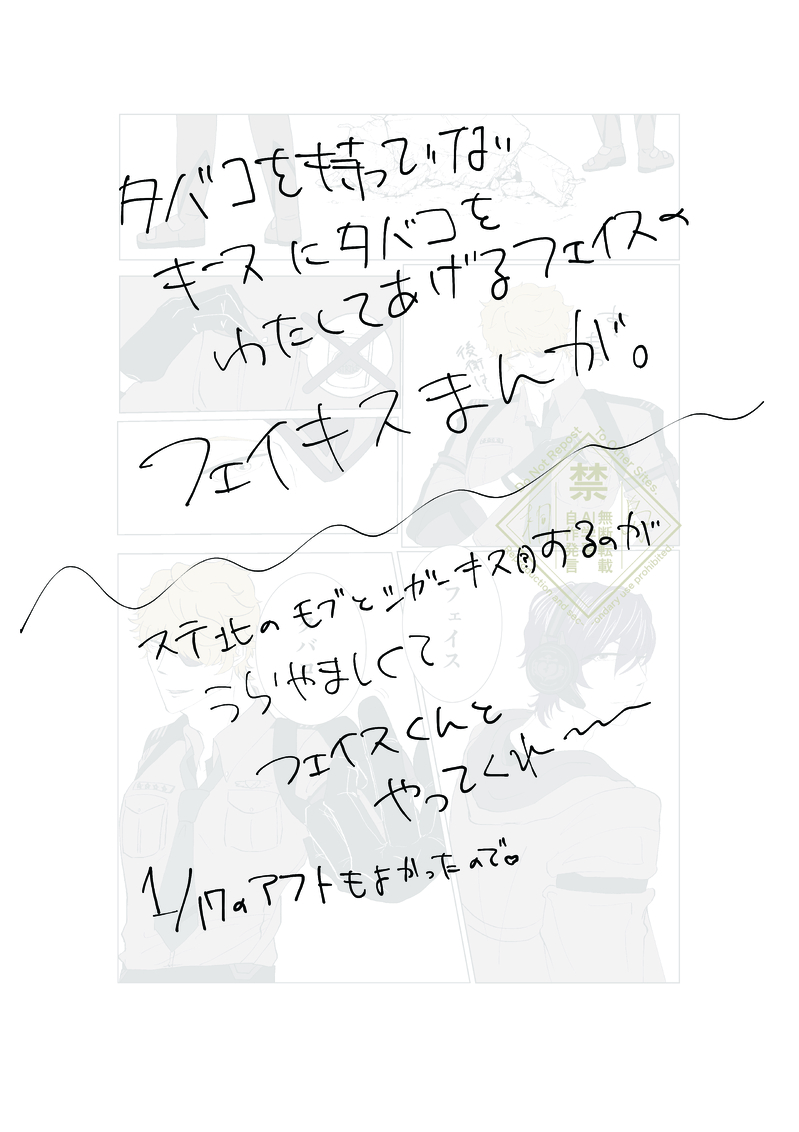 タバコを持ってない
キースにタバコを
わたしてあげるフェイスの
フェイキスまんが。
後側は
Do Not Repost
To Other Sites.
禁
無断転載
AI
自作発言
ondary use prohibited
ステ北のモブとシガーキス(?)するのが
うらやましくて
フェイス
フェイスくんと
やってくれ〜
1/17のアフトもよかったので。